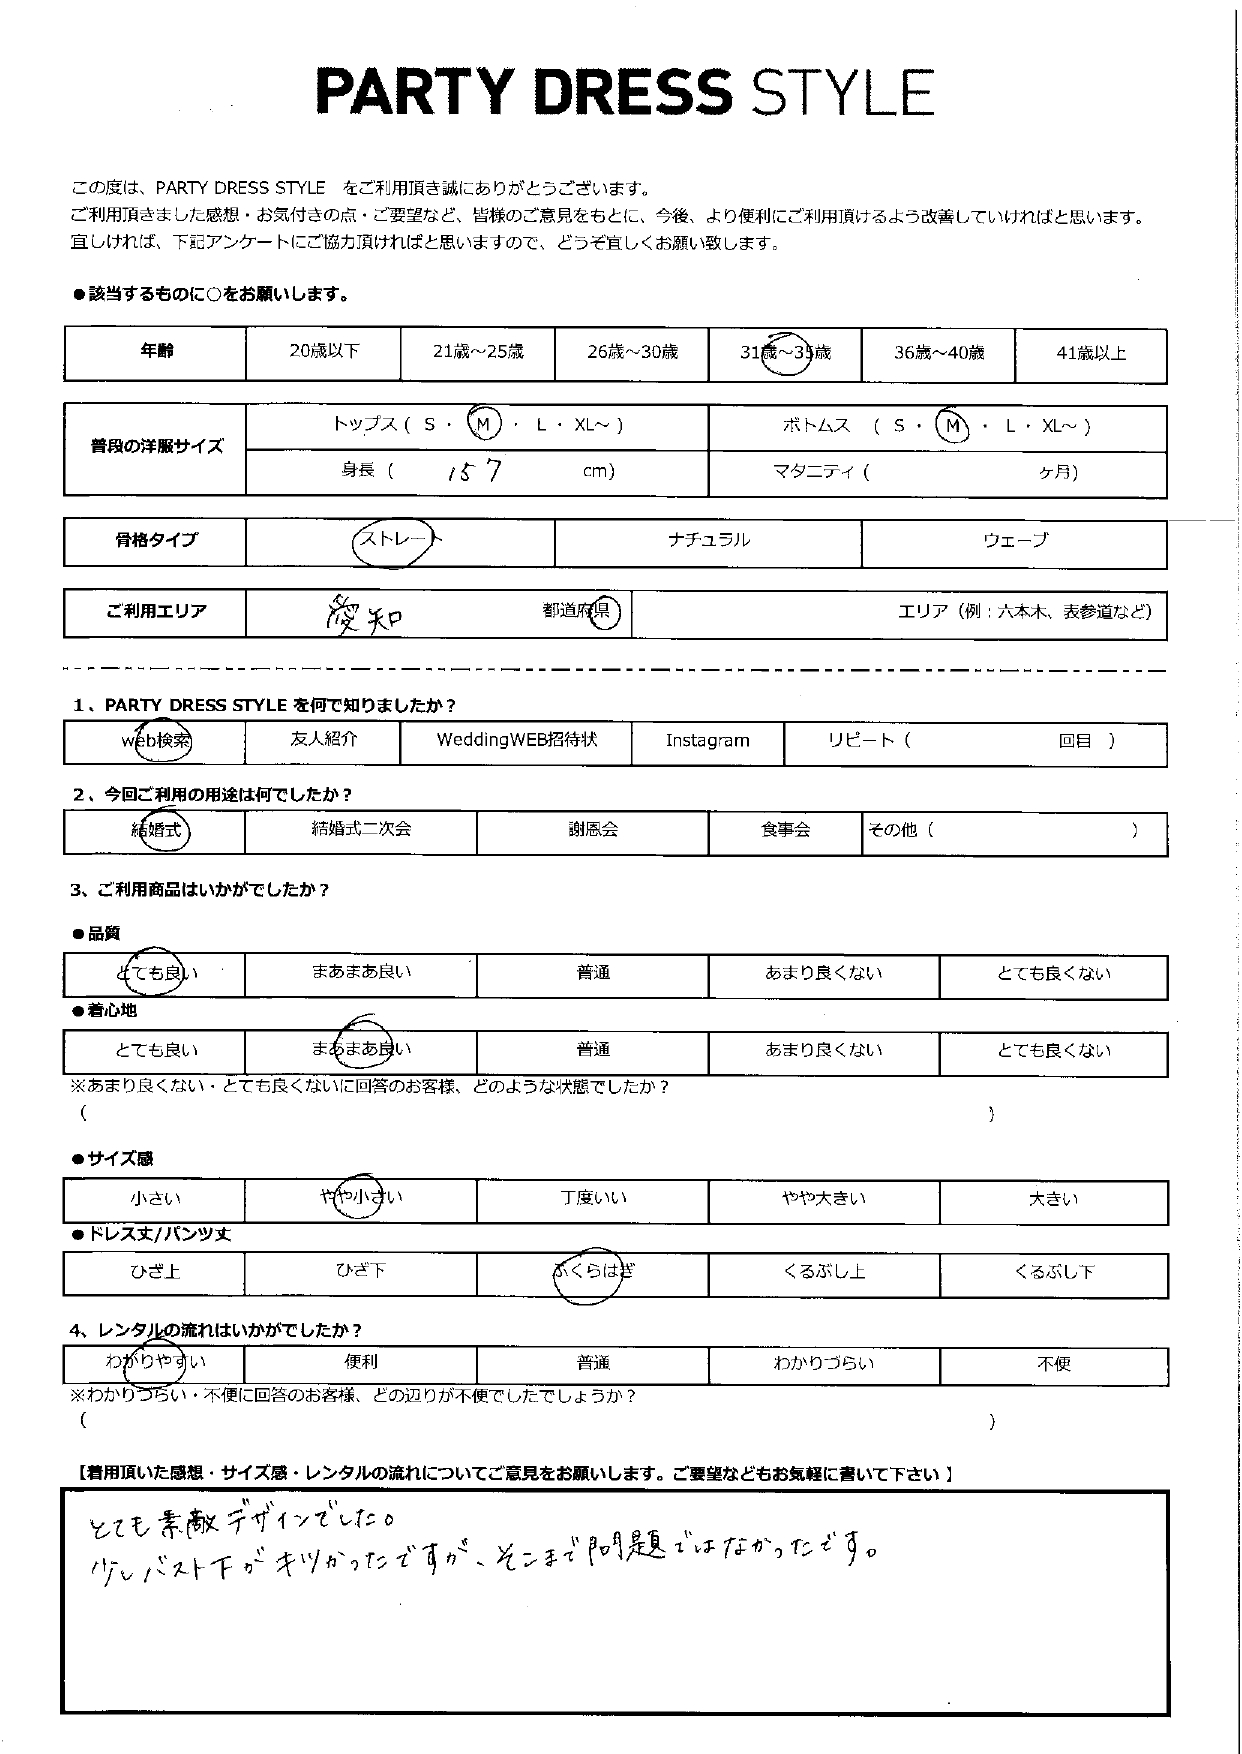 PARTY DRESS STYLE
この度は、PARTY DRESS STYLE をご利用頂き誠にありがとうございます。
ご利用頂きました感想・お気付きの点・ご要望など、皆様のご意見をもとに、今後、より便利にご利用頂けるよう改善していければと思います。
宜しければ、下記アンケートにご協力頂ければと思いますので、どうぞ宜しくお願い致します。
●該当するものに○をお願いします。
年齢 20歳以下 21歳～25歳 26歳～30歳 31歳～35歳 36歳～40歳 41歳以上
普段の洋服サイズ トップス ( S ・ M ・ L ・ XL～ ) ボトムス ( S ・ M ・ L ・ XL～ )
身長 ( 157 cm) マタニティ ( ヶ月)
骨格タイプ ストレート ナチュラル ウェーブ
ご利用エリア 愛知 都道府県 エリア（例：六本木、表参道など）
1、PARTY DRESS STYLE を何で知りましたか？
web検索 友人紹介 WeddingWEB招待状 Instagram リピート ( 回目 )
2、今回ご利用の用途は何でしたか？
結婚式 結婚式二次会 謝恩会 食事会 その他 ( )
3、ご利用商品はいかがでしたか？
●品質
とても良い まあまあ良い 普通 あまり良くない とても良くない
●着心地
とても良い まあまあ良い 普通 あまり良くない とても良くない
※あまり良くない・とても良くないに回答のお客様、どのような状態でしたか？
( )
●サイズ感
小さい やや小さい 丁度いい やや大きい 大きい
●ドレス丈/パンツ丈
ひざ上 ひざ下 ふくらはぎ くるぶし上 くるぶし下
4、レンタルの流れはいかがでしたか？
わかりやすい 便利 普通 わかりづらい 不便
※わかりづらい・不便に回答のお客様、どの辺りが不便でしたでしょうか？
( )
【着用頂いた感想・サイズ感・レンタルの流れについてご意見をお願いします。ご要望などもお気軽に書いて下さい 】
とても素敵デザインでした。
少しバスト下がキツかったですが、そこまで問題ではなかったです。